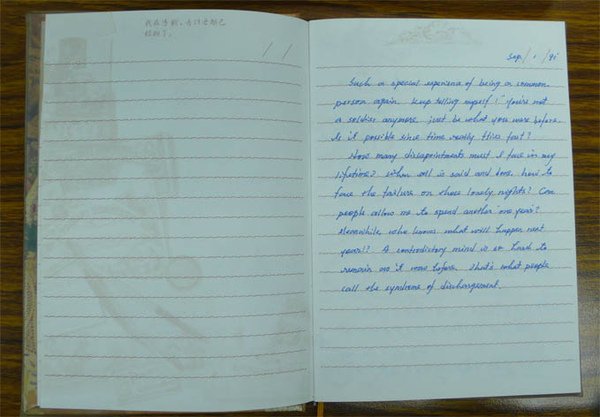 我在等到,青详告期已
经到了。
/ /
Sep / 1 / 91
Such a special experience of being a common
person again. Keep telling myself: "You're not
a soldier anymore, just be what you were before.
Is it possible since time really flies fast?
How many disappointments must I face in my
lifetime? When all is said and done, how to
face the failure on those lonely nights? Can
people allow me to spend another "one year"?
Meanwhile, who knows what will happen next
year!? A contradictory mind is so hard to
remain as it was before. That's what people
call the syndrome of dischargement.